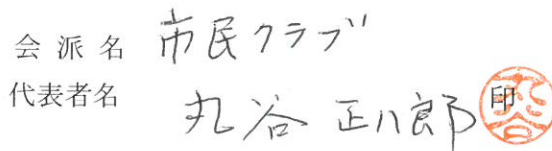 会派名 市民クラブ
代表者名 丸谷 正八郎 印